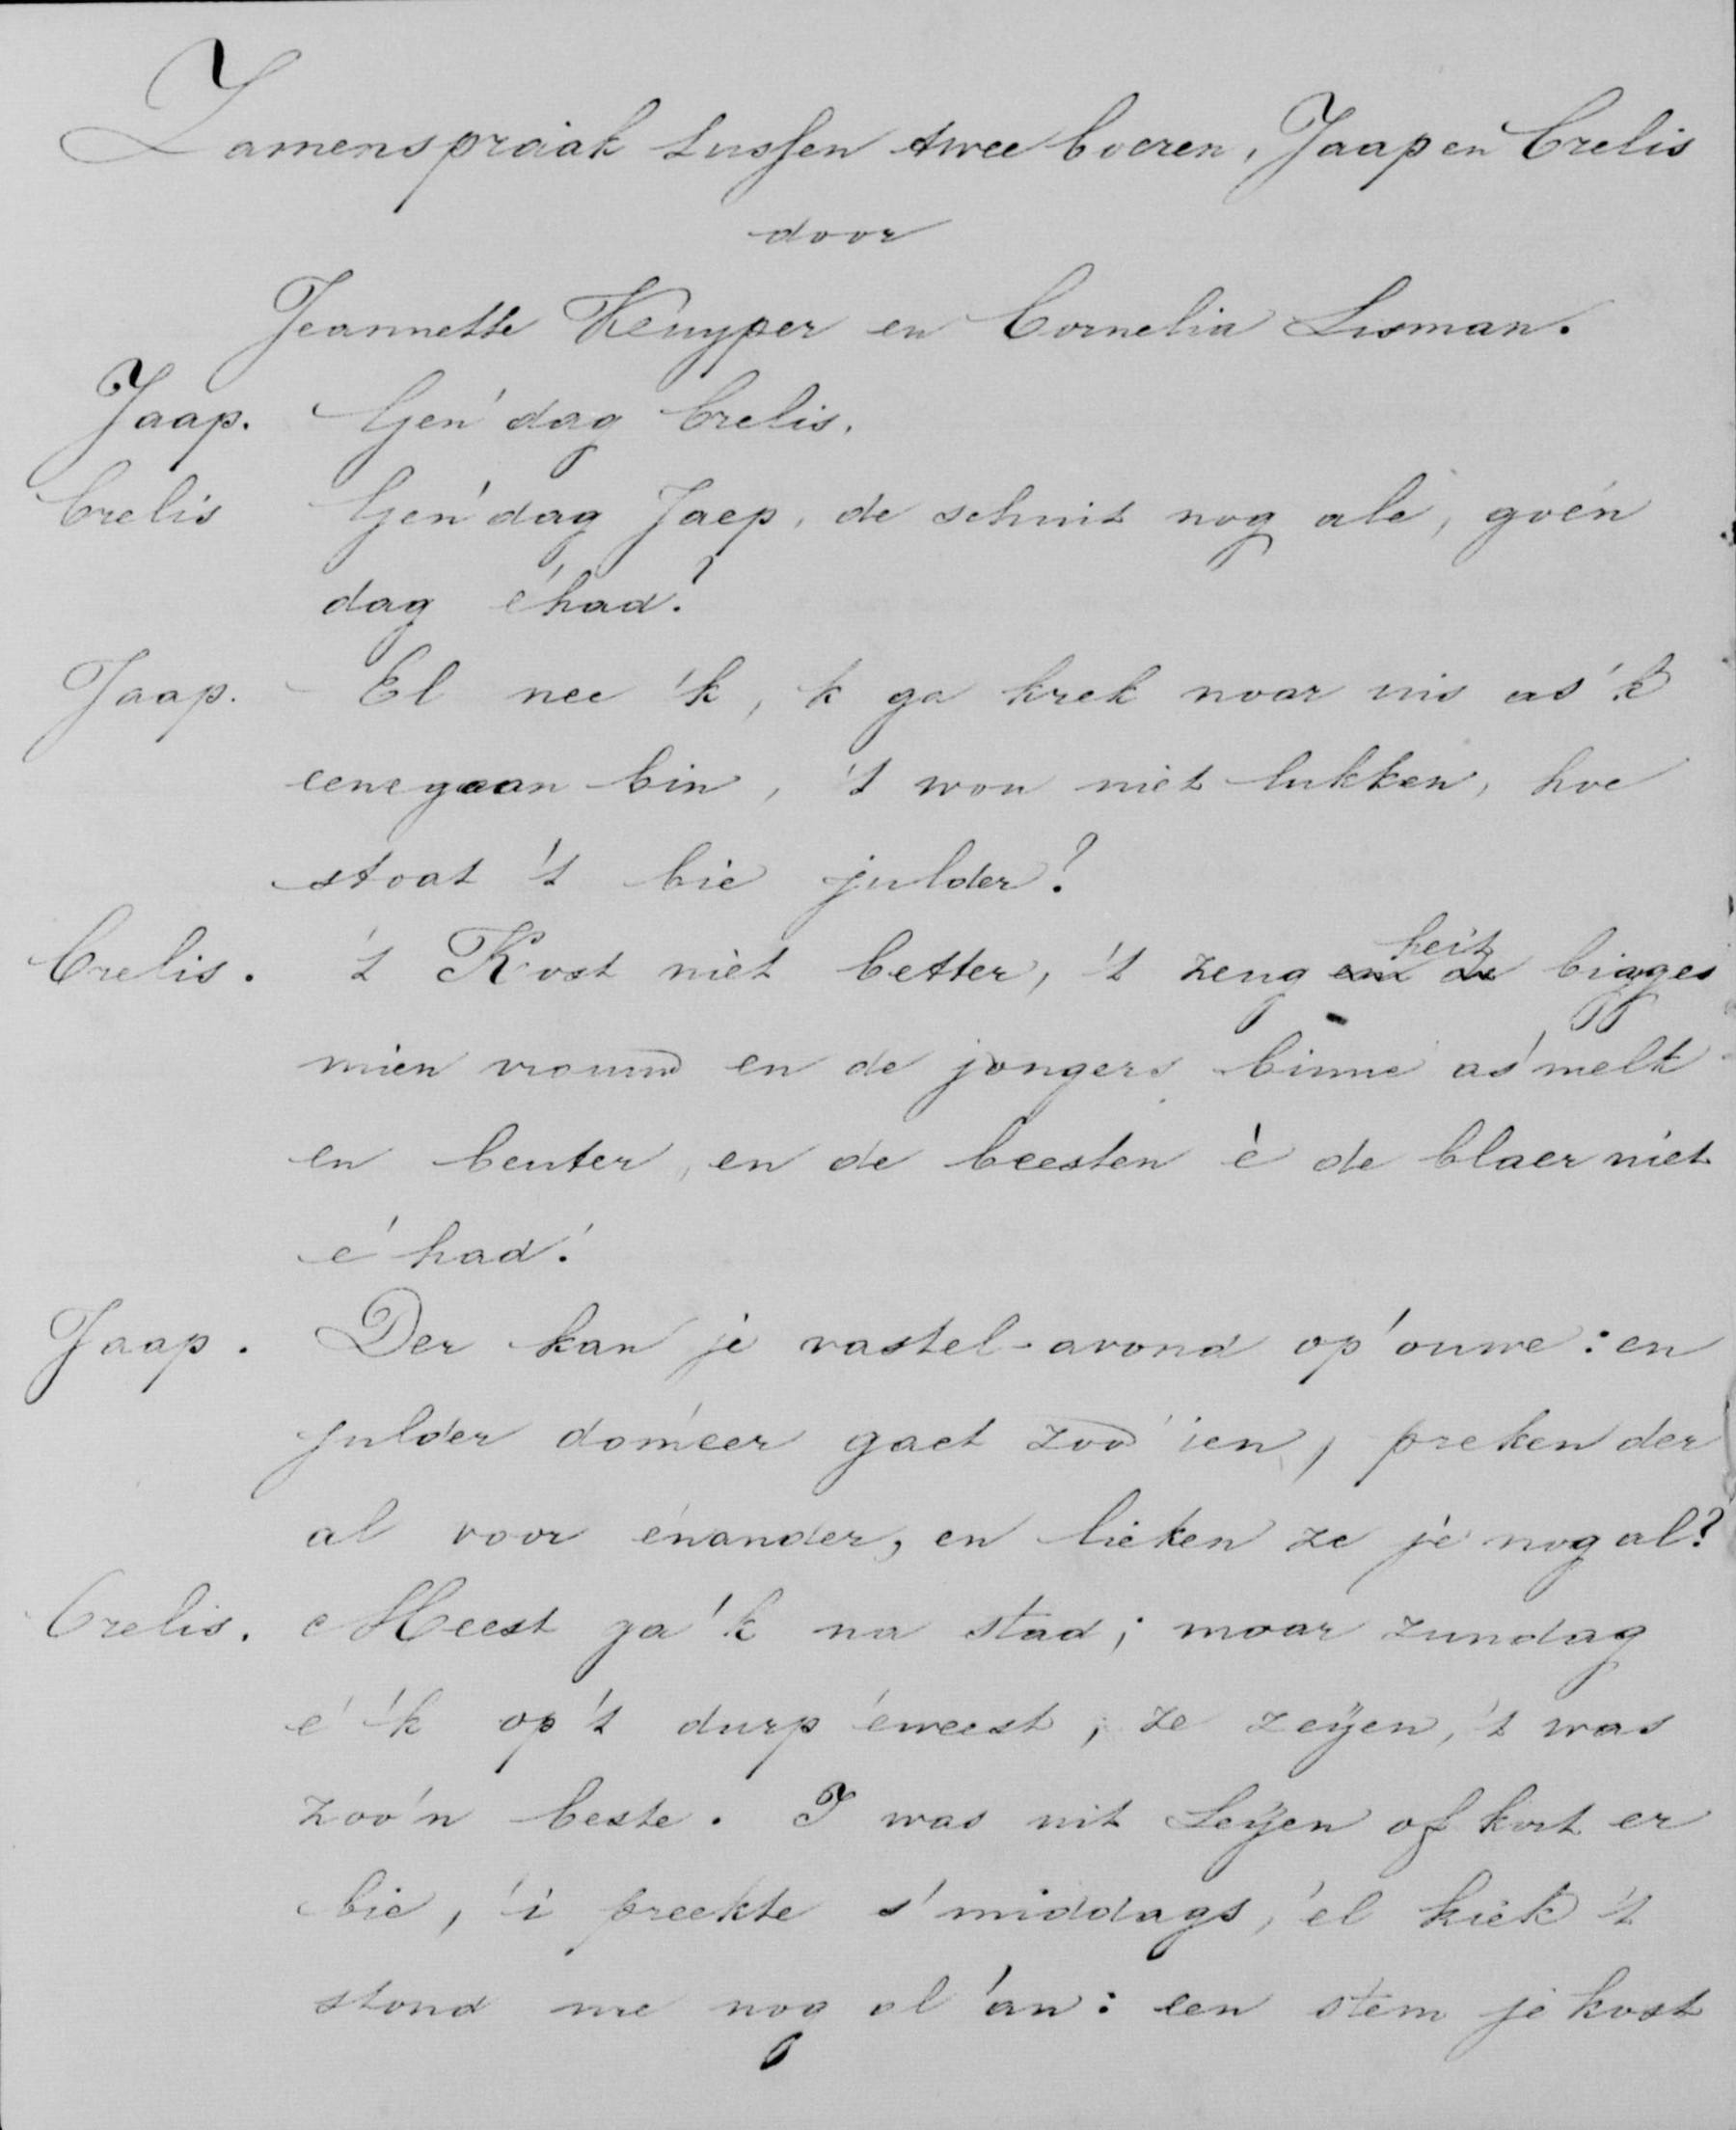 Zamenspraak tussen twee boeren, Jaap en Crelis
door
Jeannette Kuyper en Cornelia Lusman.
Jaap. Gen' dag Crelis.
Crelis Gen' dag Jaep, de schuit nog ale, goên
dag é'had?
Jaap. El nee 'k, 'k ga krek noar uis as 'k
eene gaan bin, 't wou niet lukken, hoe
stoat 't bie julder?
Crelis. 't Kost niet better, 't zeug heit biggges
mien vrouw en de jongers binne as melk
en beuter, en de beesten è de blaer niet
é'had!
Jaap. Der kan je vastel-avond op'ouwe: en
julder doméer gaet zoo ien, preken der
al voor énander, en lieken ze je nog al?
Crelis. Meest ga 'k na stad; moar zundag
é 'k op 't durp éweest; ze zeijen, 't was
zoo'n beste. I was uit Leijen of kort er
bie, 'i preekte s'middags, 'el kiek 't
stond me nog al 'an: een stem je kost